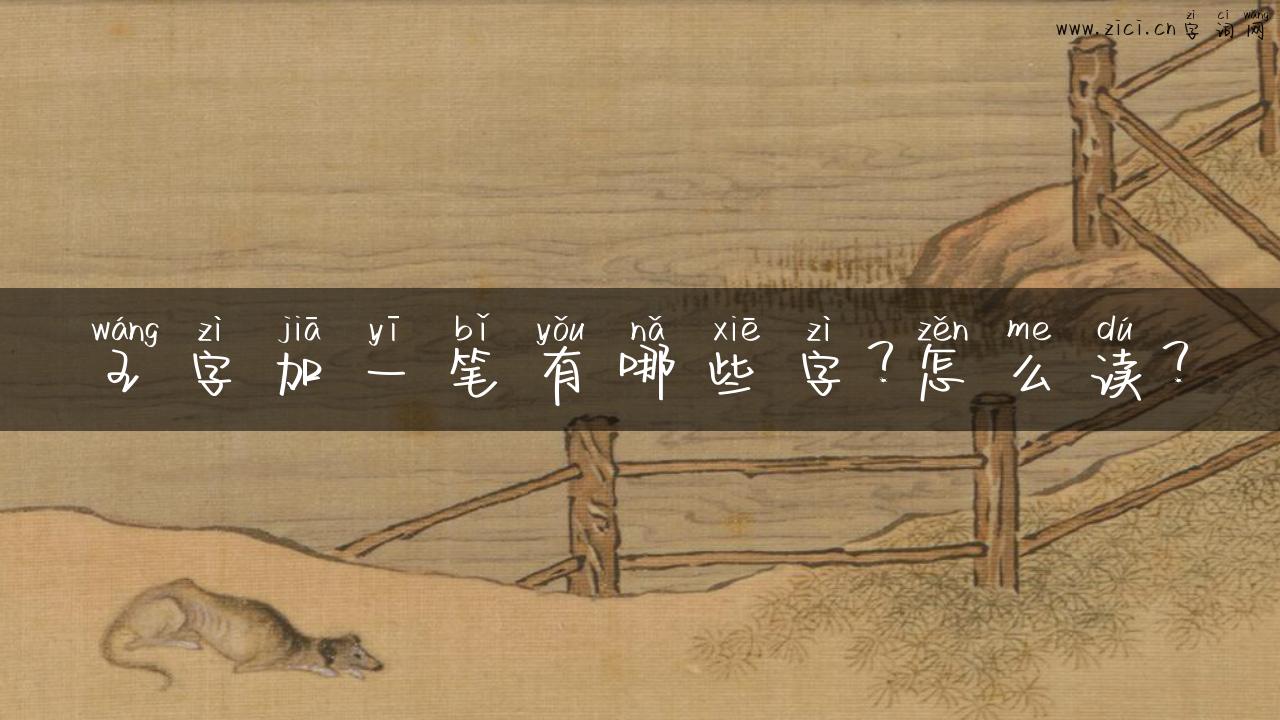 zì cí wǎng
www.zici.cn 字词网
wáng zì jiā yī bǐ yǒu nǎ xiē zì zěn me dú
王字加一笔有哪些字?怎么读?